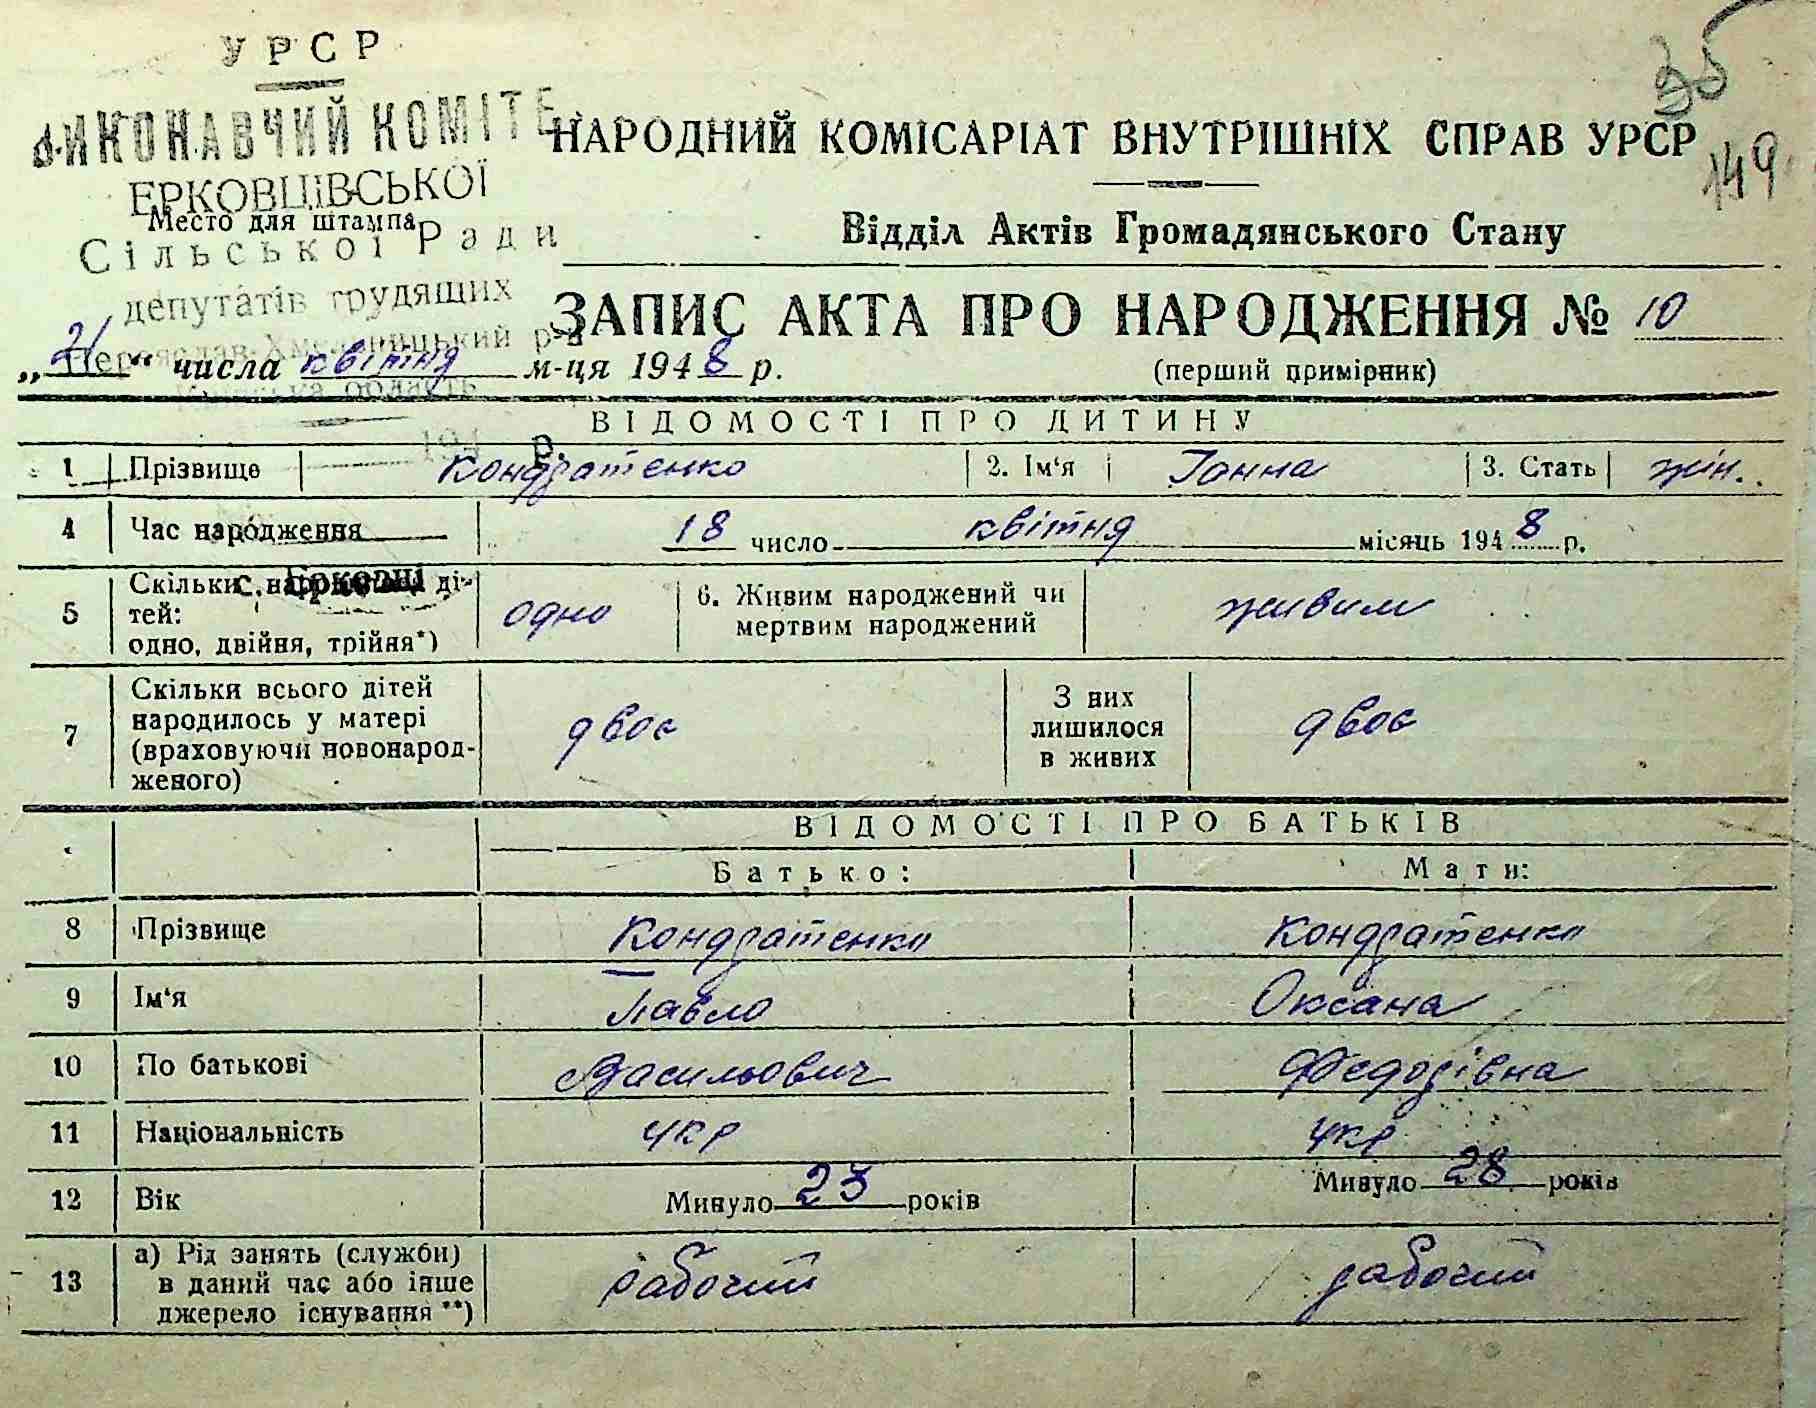 УРСР
ВИКОНАВЧИЙ КОМІТЕ
ЕРКОВЦІВСЬКОЇ
Место для штампа
Сільської Ради
депутатів трудящих
Переяслав-Хмельницький р-н
область
194 р.
с. Єрковці
35
149
НАРОДНИЙ КОМІСАРІАТ ВНУТРІШНІХ СПРАВ УРСР
Відділ Актів Громадянського Стану
ЗАПИС АКТА ПРО НАРОДЖЕННЯ № 10
(перший примірник)
„21“ числа квітня м-ця 1948 р.
ВІДОМОСТІ ПРО ДИТИНУ
1 Прізвище Кондратенко 2. Ім‘я Ганна 3. Стать жін.
4 Час народження 18 число квітня місяць 1948 р.
5 Скільки народилося ді-
тей:
одно, двійня, трійня*) одно
6. Живим народжений чи
мертвим народжений живим
7 Скільки всього дітей
народилось у матері
(враховуючи новонарод-
женого) двоє
З них
лишилося
в живих двоє
ВІДОМОСТІ ПРО БАТЬКІВ
Батько: Мати:
8 Прізвище Кондратенко Кондратенко
9 Ім‘я Павло Оксана
10 По батькові Васильович Федорівна
11 Національність укр укр
12 Вік Минуло 23 років Минуло 28 років
13 а) Рід занять (служби)
в даний час або інше
джерело існування**) рабочий рабочий